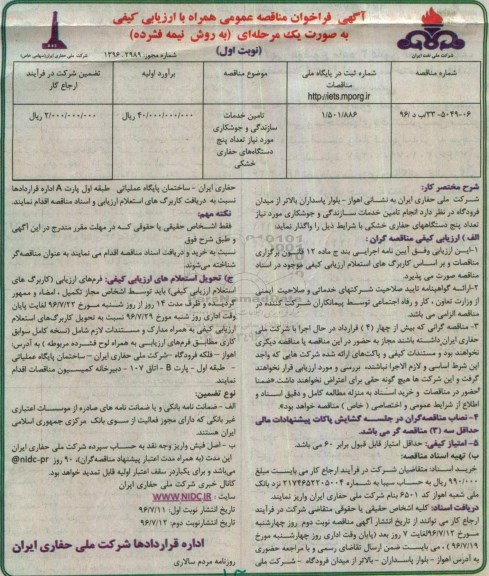 آگهی فراخوان مناقصه عمومی همراه با ارزیابی کیفی
به صورت یک مرحله‌ای (به روش نیمه فشرده)
(نوبت اول)
شماره مجوز: ۱۳۹۶.۲۹۸۹
شرکت ملی نفت ایران
شرکت ملی حفاری ایران (سهامی خاص)
شماره مناقصه
شماره ثبت در پایگاه ملی مناقصات
http://iets.mporg.ir
موضوع مناقصه
برآورد اولیه
تضمین شرکت در فرآیند ارجاع کار
۱/۵۰۱/۸۸۶
تامین خدمات سازندگی و جوشکاری مورد نیاز تعداد پنج دستگاه‌های حفاری خشکی
۴۰/۰۰۰/۰۰۰/۰۰۰ ریال
۲/۰۰۰/۰۰۰/۰۰۰ ریال
شرح مختصر کار:
شرکت ملی حفاری ایران به نشانی اهواز - بلوار پاسداران بالاتر از میدان
فرودگاه در نظر دارد انجام تامین خدمات سازندگی و جوشکاری مورد نیاز
تعداد پنج دستگاههای حفاری خشکی با شرایط ذیل را واگذار نماید:
الف) ارزیابی کیفی مناقصه گران:
۱-این ارزیابی وفق آیین نامه اجرایی بند ج ماده ۱۲ قانون برگزاری
مناقصات و بر اساس کاربرگ های استعلام ارزیابی کیفی موجود در اسناد
مناقصه صورت می پذیرد.
۲-ارائه گواهینامه تایید صلاحیت شرکتهای خدماتی و صلاحیت ایمنی
از وزارت تعاون، کار و رفاه اجتماعی توسط پیمانکاران شرکت کننده در
مناقصه الزامی می باشد.
۳- مناقصه گرانی که بیش از چهار (۴) قرارداد در حال اجرا با شرکت ملی
حفاری ایران داشته باشند مجاز به حضور در این مناقصه یا مناقصه دیگری
نخواهند بود و مستندات کیفی و پاکت‌های ارائه شده شرکت هایی که واجد
این شرط اساسی و لازم الاجرا نباشند، بررسی و مورد ارزیابی قرار نخواهند
گرفت و این شرکت ها هیچ گونه حقی برای اعتراض نخواهند داشت. «ضمنا
حضور در مناقصات و خرید اسناد به منزله مطالعه کامل و دقیق اسناد و
اطلاع از شرایط عمومی و اختصاصی (خاص) مناقصه خواهد بود».
۴- نصاب مناقصه‌گران در جلسه گشایش پاکات پیشنهادات مالی
حداقل سه (۳) مناقصه گر می باشد.
۵- امتیاز کیفی: حداقل امتیاز قابل قبول برابر ۶۰ می باشد.
ب) تهیه اسناد مناقصه:
خرید اسناد: متقاضیان شرکت در فرآیند ارجاع کار می بایست مبلغ
۹۹۰/۰۰۰ ریال به حساب سیبا به شماره ۲۱۷۴۶۵۲۲۰۵۰۰۴ نزد بانک
ملی شعبه اهواز کد ۶۵۰۱ بنام شرکت ملی حفاری ایران واریز نمایند.
دریافت اسناد: کلیه اشخاص حقیقی یا حقوقی متقاضی شرکت در فرآیند
ارجاع کار می توانند از تاریخ انتشار آگهی مناقصه نوبت دوم روز چهارشنبه
مورخ ۹۶/۷/۱۲ لغایت ۷ روز بعد (پایان وقت اداری روز چهارشنبه مورخ
۹۶/۷/۱۹)، می بایست ضمن ارسال تقاضای رسمی و با مراجعه حضوری
به آدرس اهواز - بلوار پاسداران بالاتر از میدان فرودگاه - شرکت ملی
حفاری ایران - ساختمان پایگاه عملیاتی طبقه اول پارت A اداره قراردادها
نسبت به دریافت کاربرگ های استعلام ارزیابی و اسناد مناقصه اقدام نمایند.
نکته مهم:
فقط اشخاص حقیقی یا حقوقی که در مهلت مقرر مندرج در این آگهی
و طبق شرح فوق
نسبت به خرید و دریافت اسناد مناقصه اقدام می نمایند به عنوان مناقصه‌گر
شناخته می‌شوند.
ج) تحویل استعلام های ارزیابی کیفی: فرم‌های ارزیابی (کاربرگ های
استعلام ارزیابی کیفی) باید توسط اشخاص مجاز تکمیل، امضاء و ممهور
گردیده و ظرف مدت ۱۴ روز از روز شنبه مورخ ۹۶/۷/۲۲ لغایت پایان
وقت اداری روز شنبه مورخ ۹۶/۷/۲۹ نسبت به تحویل کاربرگ‌های استعلام
ارزیابی کیفی به همراه مدارک و مستندات لازم شامل (نسخه کامل سوابق
کاری مطابق فرم‌های ارزیابی به همراه لوح فشرده مربوطه) به آدرس:
اهواز - فلکه فرودگاه - شرکت ملی حفاری ایران - ساختمان پایگاه عملیاتی
- طبقه اول - پارت B - اتاق ۱۰۷ - دبیرخانه کمیسیون مناقصات اقدام
نمایند.
نوع تضمین:
الف - ضمانت نامه بانکی و یا ضمانت نامه های صادره از موسسات اعتباری
غیر بانکی که دارای مجوز فعالیت از سوی بانک مرکزی جمهوری اسلامی
ایران هستند.
ب - اصل فیش واریز وجه نقد به حساب سپرده شرکت ملی حفاری ایران
این مدت (به همراه مدت اعتبار پیشنهاد مناقصه‌گران)، ۹۰ روز @nidc-pr
می‌باشد و برای یکبار در سقف اعتبار اولیه قابل تمدید خواهد بود.
کانال خبری شرکت ملی حفاری ایران
سایت: WWW.NIDC.IR
تاریخ انتشار نوبت اول: ۹۶/۷/۱۱
تاریخ انتشار نوبت دوم: ۹۶/۷/۱۲
اداره قراردادها شرکت ملی حفاری ایران
روزنامه مردم سالاری